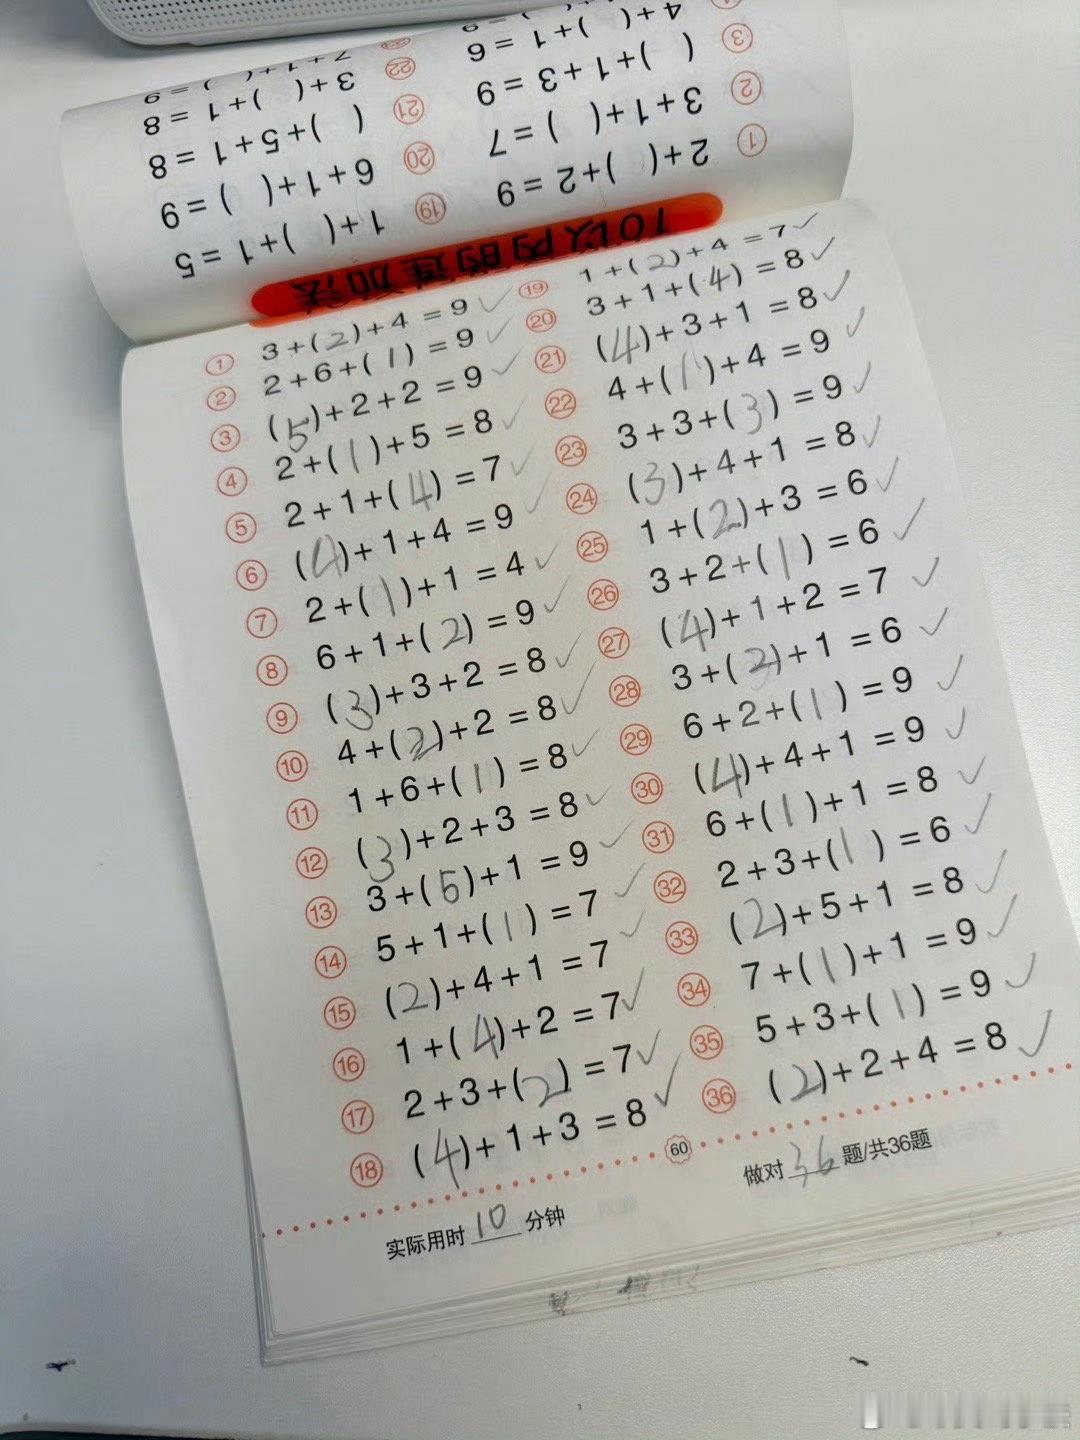 4+(
7+1+( )=9
( )+1=6
3+( )+1=8
③ ( )+1+3=9
㉒ ( )+5+1=8
② 3+1+( )=7
㉑ 6+1+( )=9
① 2+( )+2=9
⑳
⑲ 1+( )+1=5
10以内的连加法
① 3+(2)+4=9 ✓
② 2+6+(1)=9 ✓
③ (5)+2+2=9 ✓
④ 2+(1)+5=8 ✓
⑤ 2+1+(4)=7 ✓
⑥ (4)+1+4=9 ✓
⑦ 2+(1)+1=4 ✓
⑧ 6+1+(2)=9 ✓
⑨ (3)+3+2=8 ✓
⑩ 4+(2)+2=8 ✓
⑪ 1+6+(1)=8 ✓
⑫ (3)+2+3=8 ✓
⑬ 3+(5)+1=9 ✓
⑭ 5+1+(1)=7 ✓
⑮ (2)+4+1=7 ✓
⑯ 1+(4)+2=7 ✓
⑰ 2+3+(2)=7 ✓
⑱ (4)+1+3=8 ✓
⑲ 1+(2)+4=7 ✓
⑳ 3+1+(4)=8 ✓
㉑ (4)+3+1=8 ✓
㉒ 4+(1)+4=9 ✓
㉓ 3+3+(3)=9 ✓
㉔ (3)+4+1=8 ✓
㉕ 1+(2)+3=6 ✓
㉖ 3+2+(1)=6 ✓
㉗ (4)+1+2=7 ✓
㉘ 3+(2)+1=6 ✓
㉙ 6+2+(1)=9 ✓
㉚ (4)+4+1=9 ✓
㉛ 6+(1)+1=8 ✓
㉜ 2+3+(1)=6 ✓
㉝ (2)+5+1=8 ✓
㉞ 7+(1)+1=9 ✓
㉟ 5+3+(1)=9 ✓
㊱ (2)+2+4=8 ✓
60
实际用时 10 分钟
做对 36 题/共36题